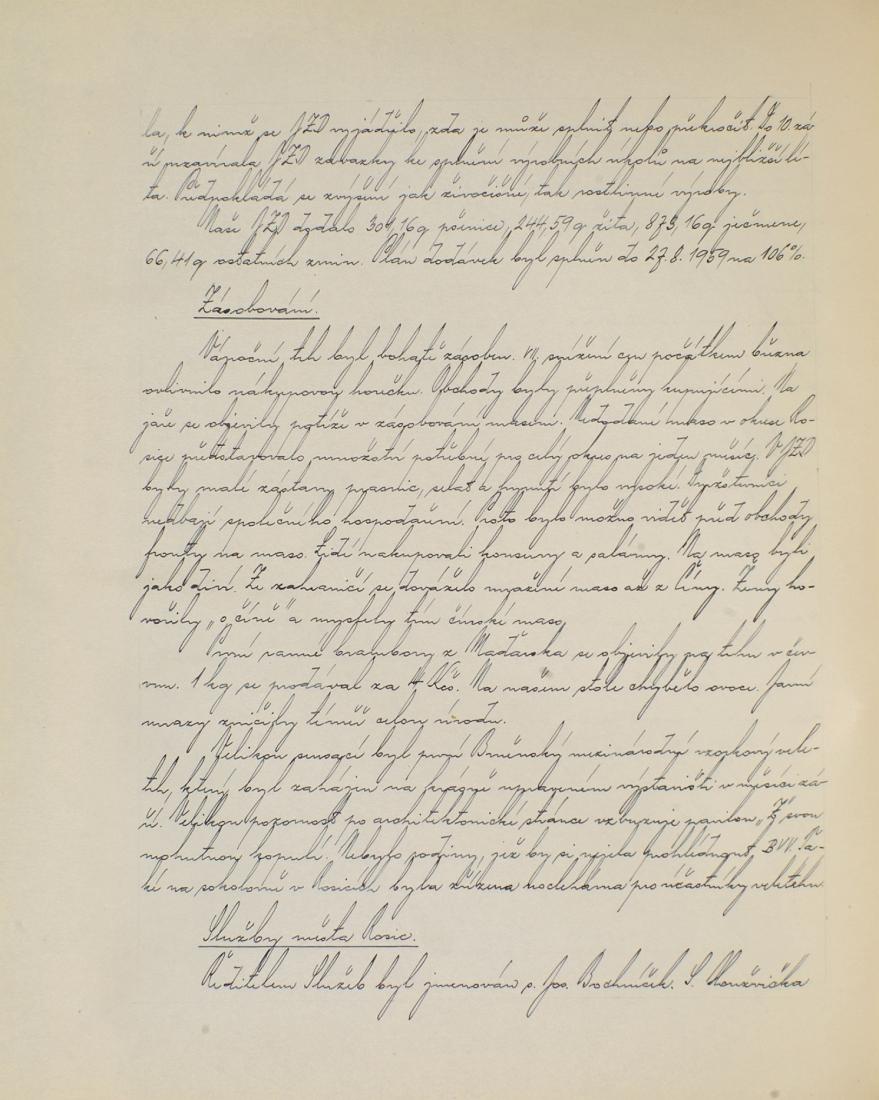 la, k nimž se JZD vyjádřilo, zda je může splnit nebo překročit. Do 10. zá-
ří uzavírala JZD závazky ke splnění výrobních úkolů na nejbližší lé-
ta. Předpokládá se zvýšení jak živočišné, tak rostlinné výroby.
Naše JZD dodalo 301,16 q pšenice, 244,59 q žita, 873,16 q ječmene,
66,41 q ostatních zrnin. Plán dodávek byl splněn do 27. 8. 1959 na 106%.
Zásobování.
Vánoční trh byl bohatě zásoben. VII. snížení cen počátkem března
ovlivnilo nákupovou horečku. Obchody byly přeplněny kupujícími. Na
jaře se objevily potíže v zásobování masem. Nedodané maso v okrese Ro-
sice představovalo množství potřebné pro celý okres na jeden měsíc. V JZD
byly malé zástavy prasnic, selat a hynutí bylo vysoké. Družstevníci
nedbají společného hospodaření. Proto bylo možno vidět před obchody
fronty na maso. Lidé nakupovali konservy a salámy. Na maso byli
jako diví. Ze zahraničí se dováželo mražené maso až z Číny. Ženy ho-
vořily „o číně" a myslely tím čínské maso.
První ranné brambory z Maďarska se objevily na trhu v červ-
nu. 1 kg se prodával za 4 Kčs. Na našem stole chybělo ovoce. Jarní
mrazy zničily téměř celou úrodu.
Velikou sensací byl první Brněnský mezinárodní vzorkový vele-
trh, který byl zahájen na krásně upraveném výstavišti v měsíci zá-
ří. Velikou pozornost po architektonické stránce vzbuzuje pavilon „Z" svou
mohutnou kopulí. Nebylo rodiny, jež by si nejela prohlédnout BVV. Ta-
ké na sokolovně v Rosicích byla zřízena noclehárna pro účastníky veletrhu.
Služby města Rosic.
Ředitelem Služeb byl jmenován s. Jos. Bochníček. S.